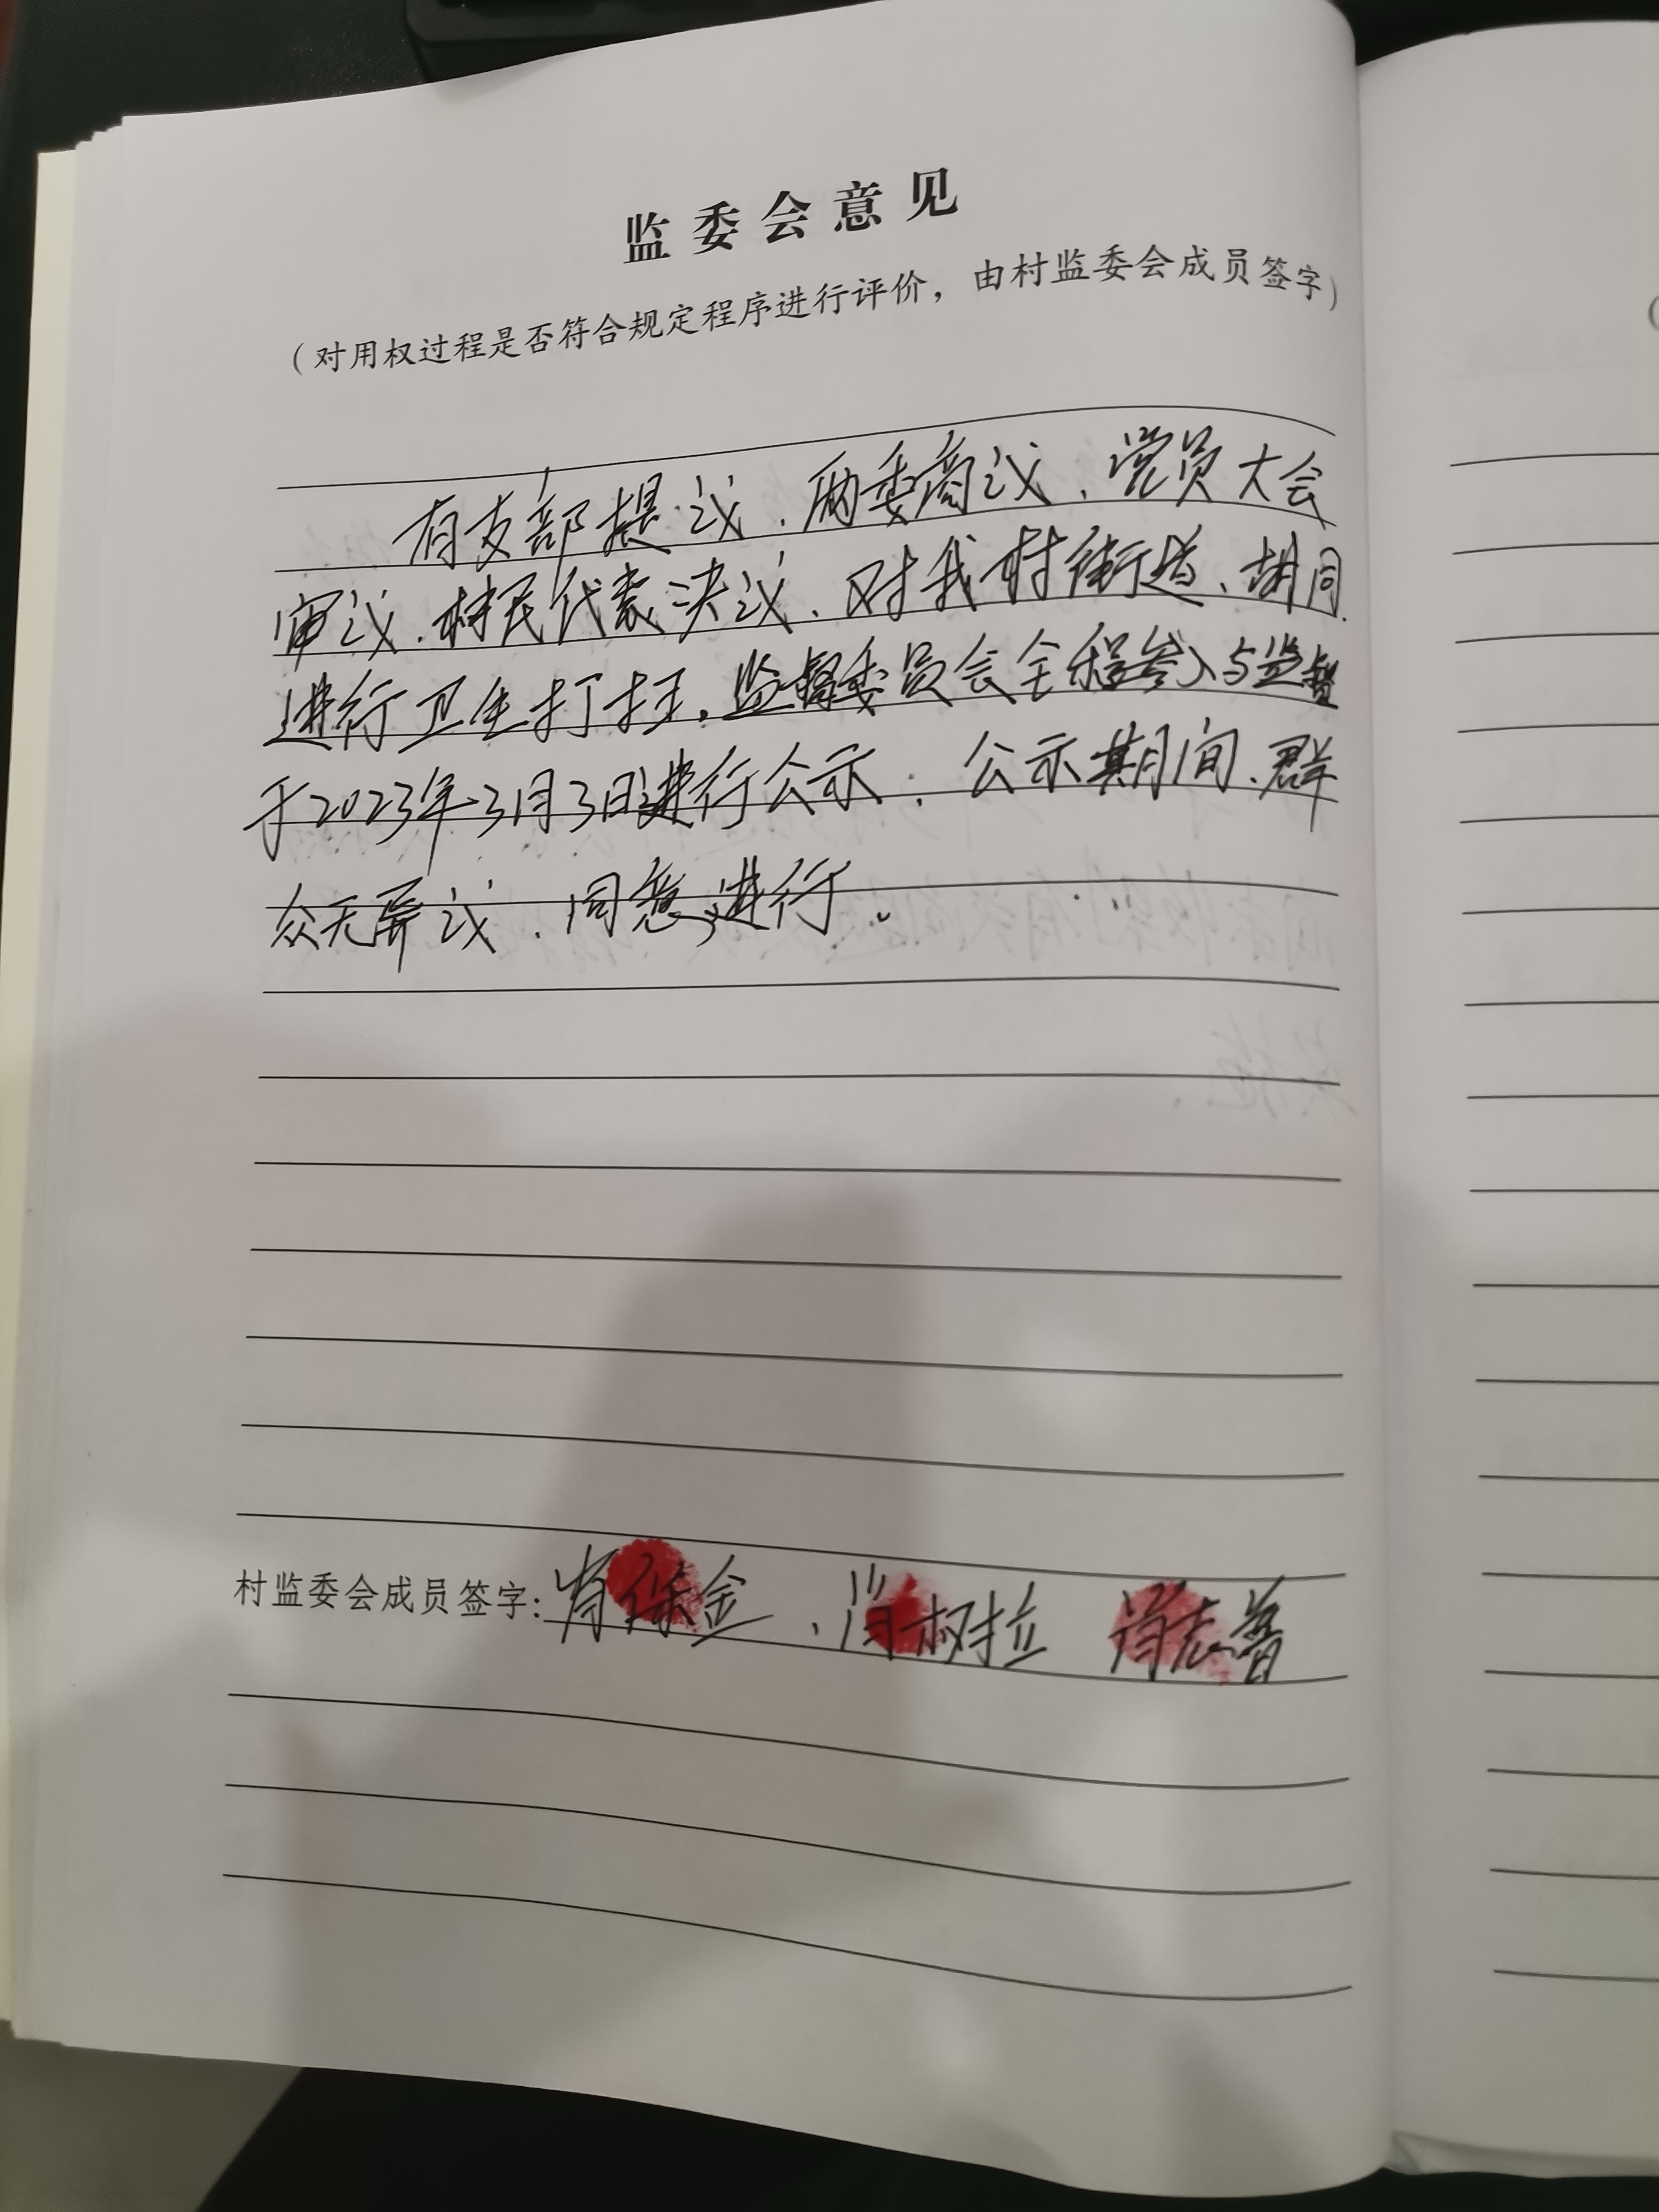 监委会意见
（对用权过程是否符合规定程序进行评价，由村监委会成员签字）
有支部提议、两委商议、党员大会
审议、村民代表决议、对我村街道、胡同
进行卫生打扫，监督委员会全程参与监督
于2023年3月3日进行公示，公示期间、群
众无异议、同意进行。
村监委会成员签字：肖保金、肖树拉 肖志普